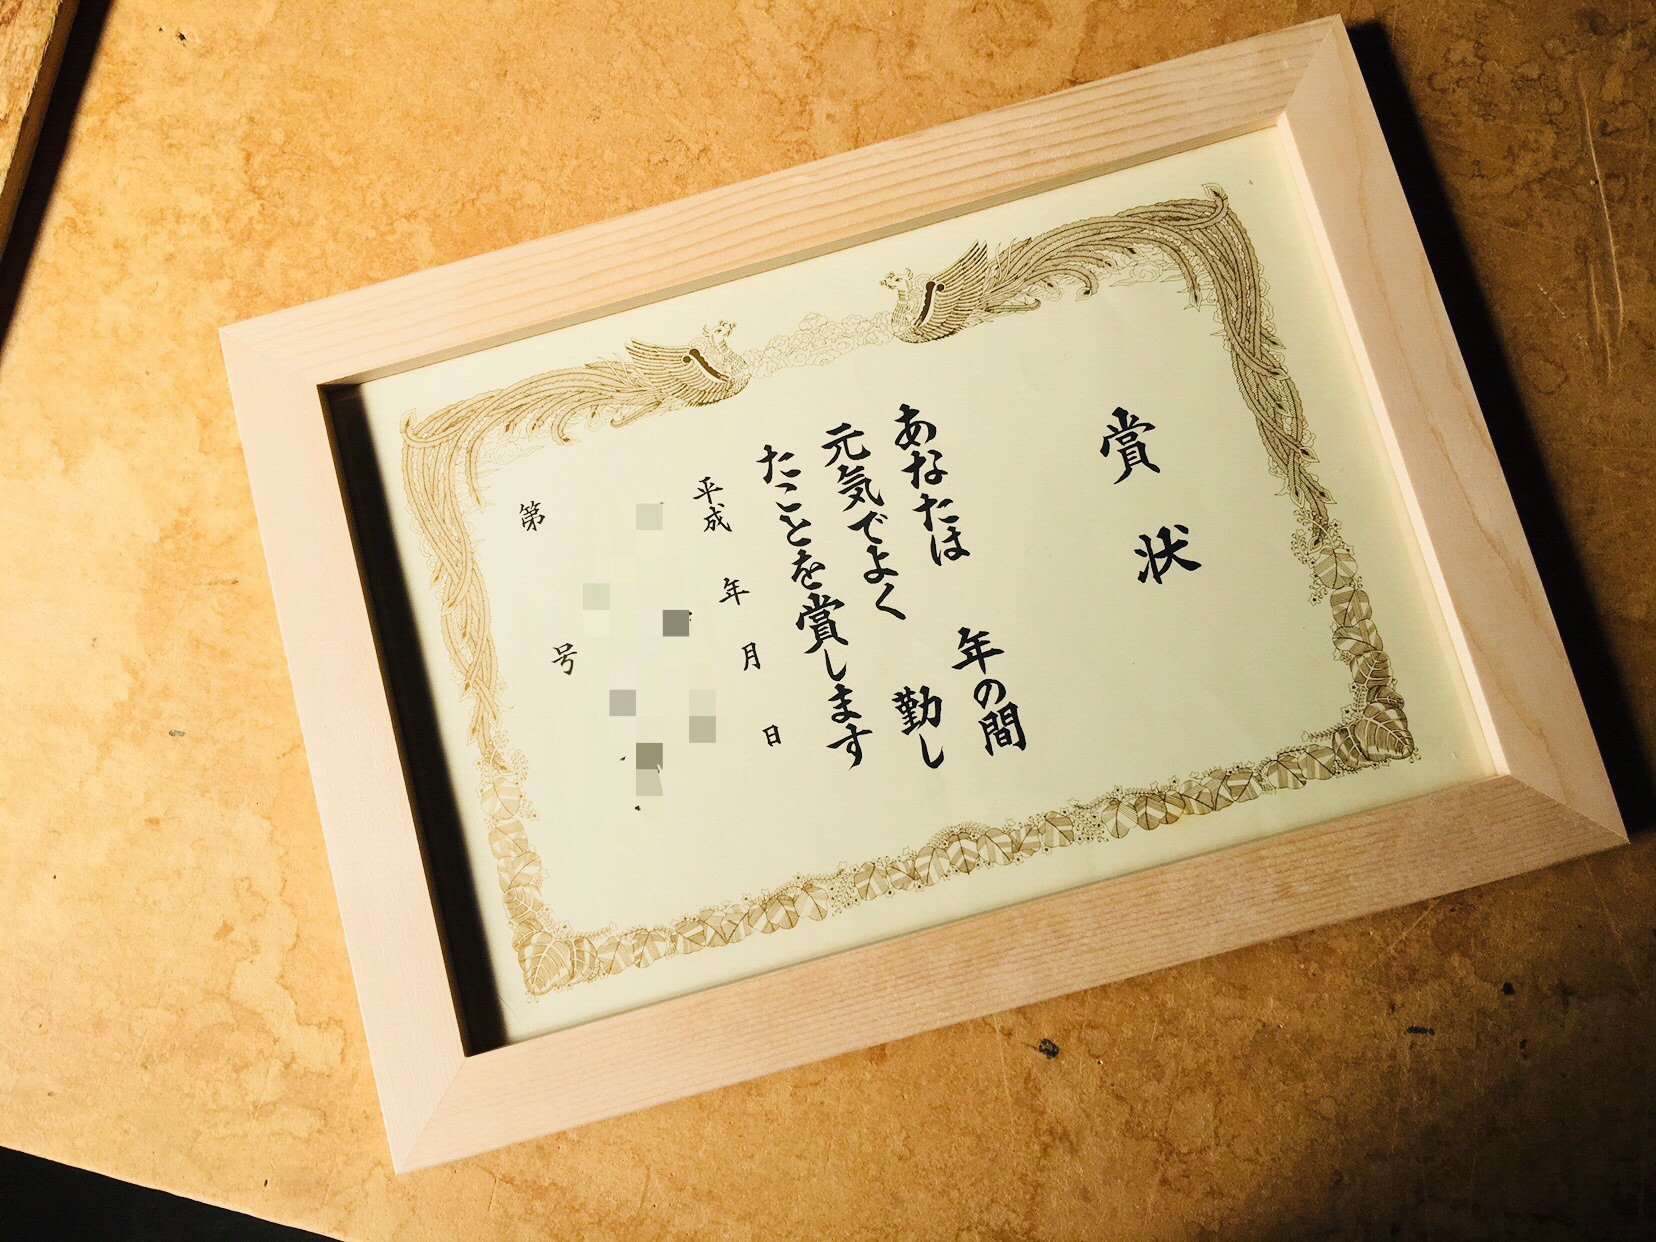 賞状
あなたは 年の間
元気でよく 勤し
たことを賞します
平成 年 月 日
第 号